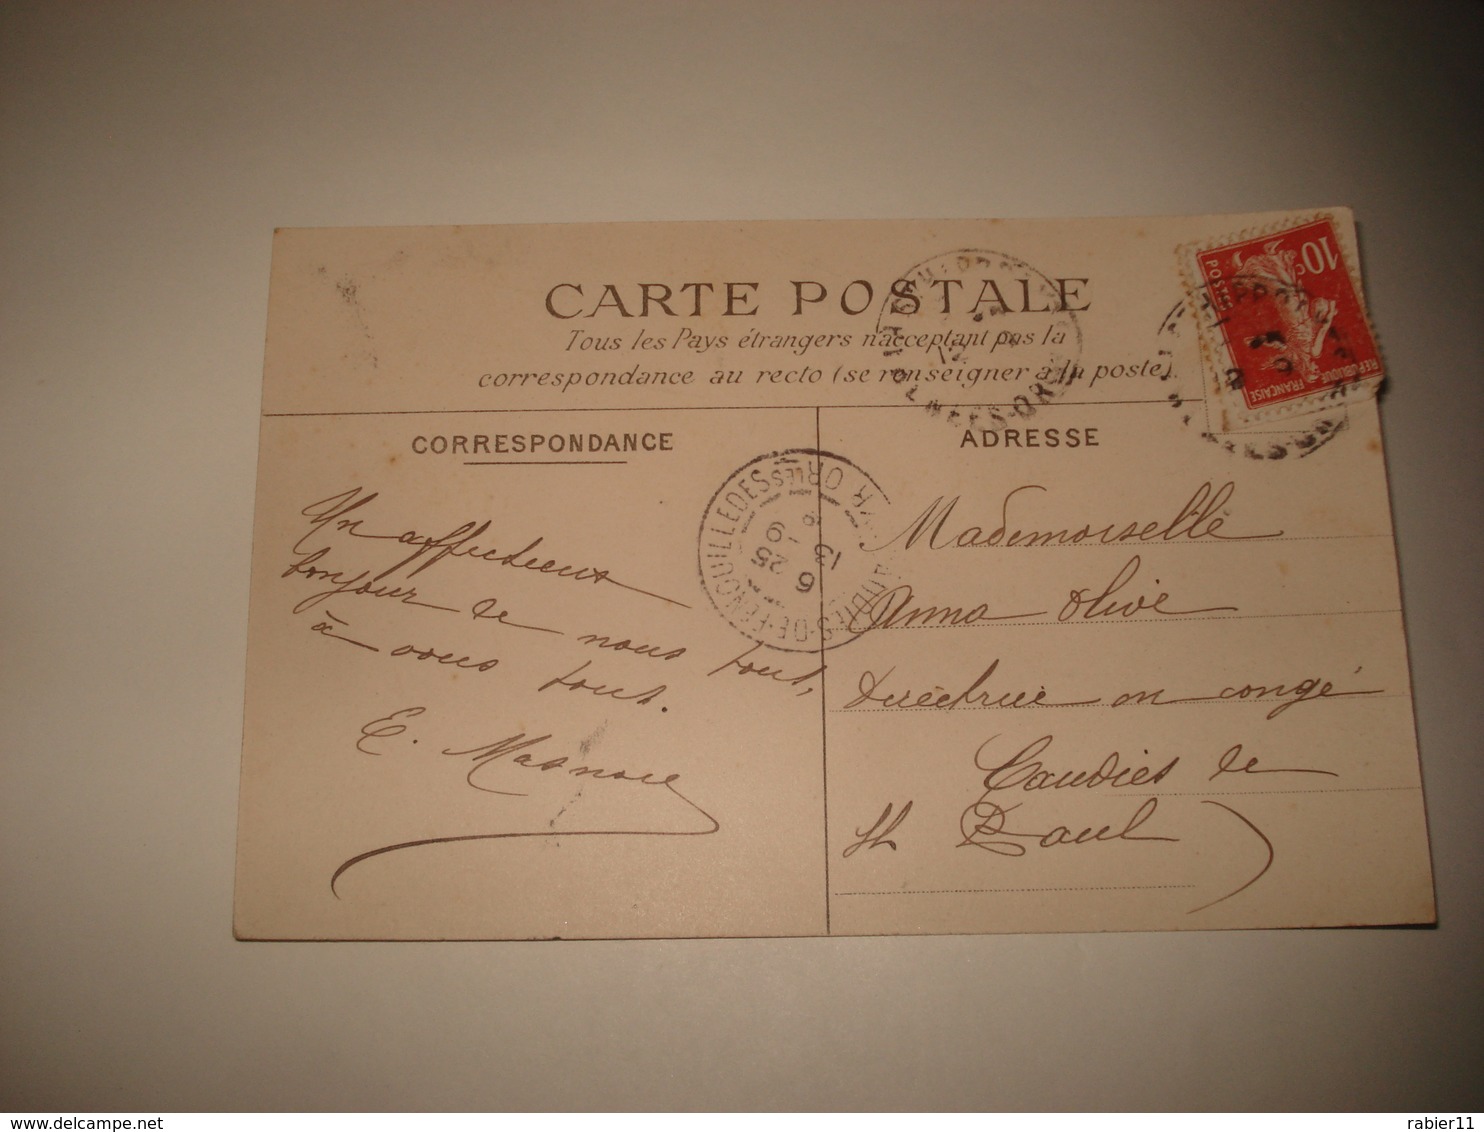 CARTE POSTALE
Tous les Pays étrangers n'acceptant pas la
correspondance au recto (se renseigner à la poste)
CORRESPONDANCE
ADRESSE
10c
POSTES
REPUBLIQUE
FRANÇAISE
CAUDIES-DE-FENOUILLEDES
13
6
Un affectueux
bonjour de nous tous,
à vous tous.
E.
Mademoiselle
Anna Olive
Directrice en congé
Caudiès de
St Paul
rabier11